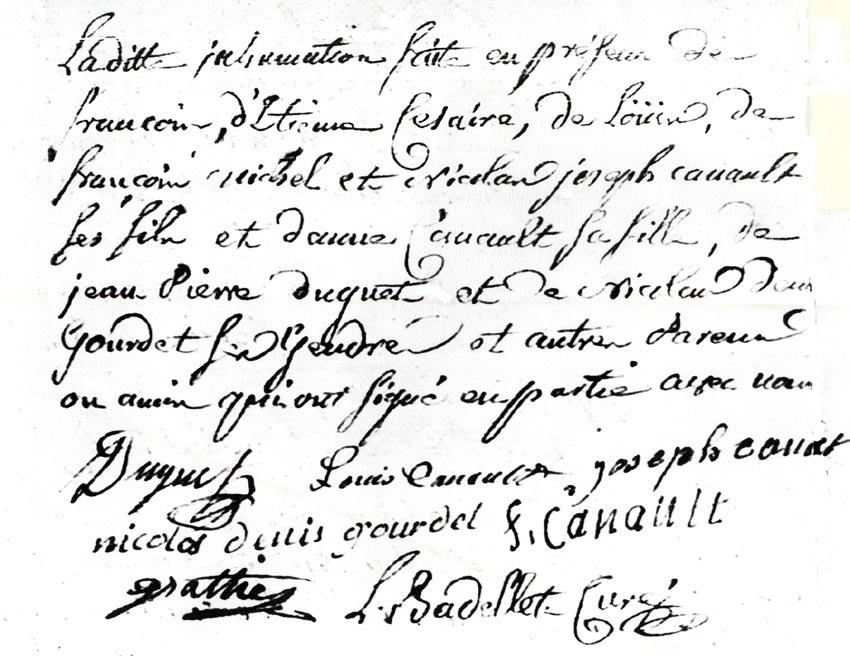 Laditte inhumation faite en présence de
françois, d'Etienne Cesaire, de Loüis, de
françois michel et nicolas joseph canault
ses fils et danne Canault sa fille, de
jean Pierre duguet et de nicolas denis
Gourdet ses Gendres et autres Parens
ou amis qui ont signé en partie avec nous
Duguet Louis Canault joseph canat
nicolas denis gourdel f. Canault
L. Badellet Curé